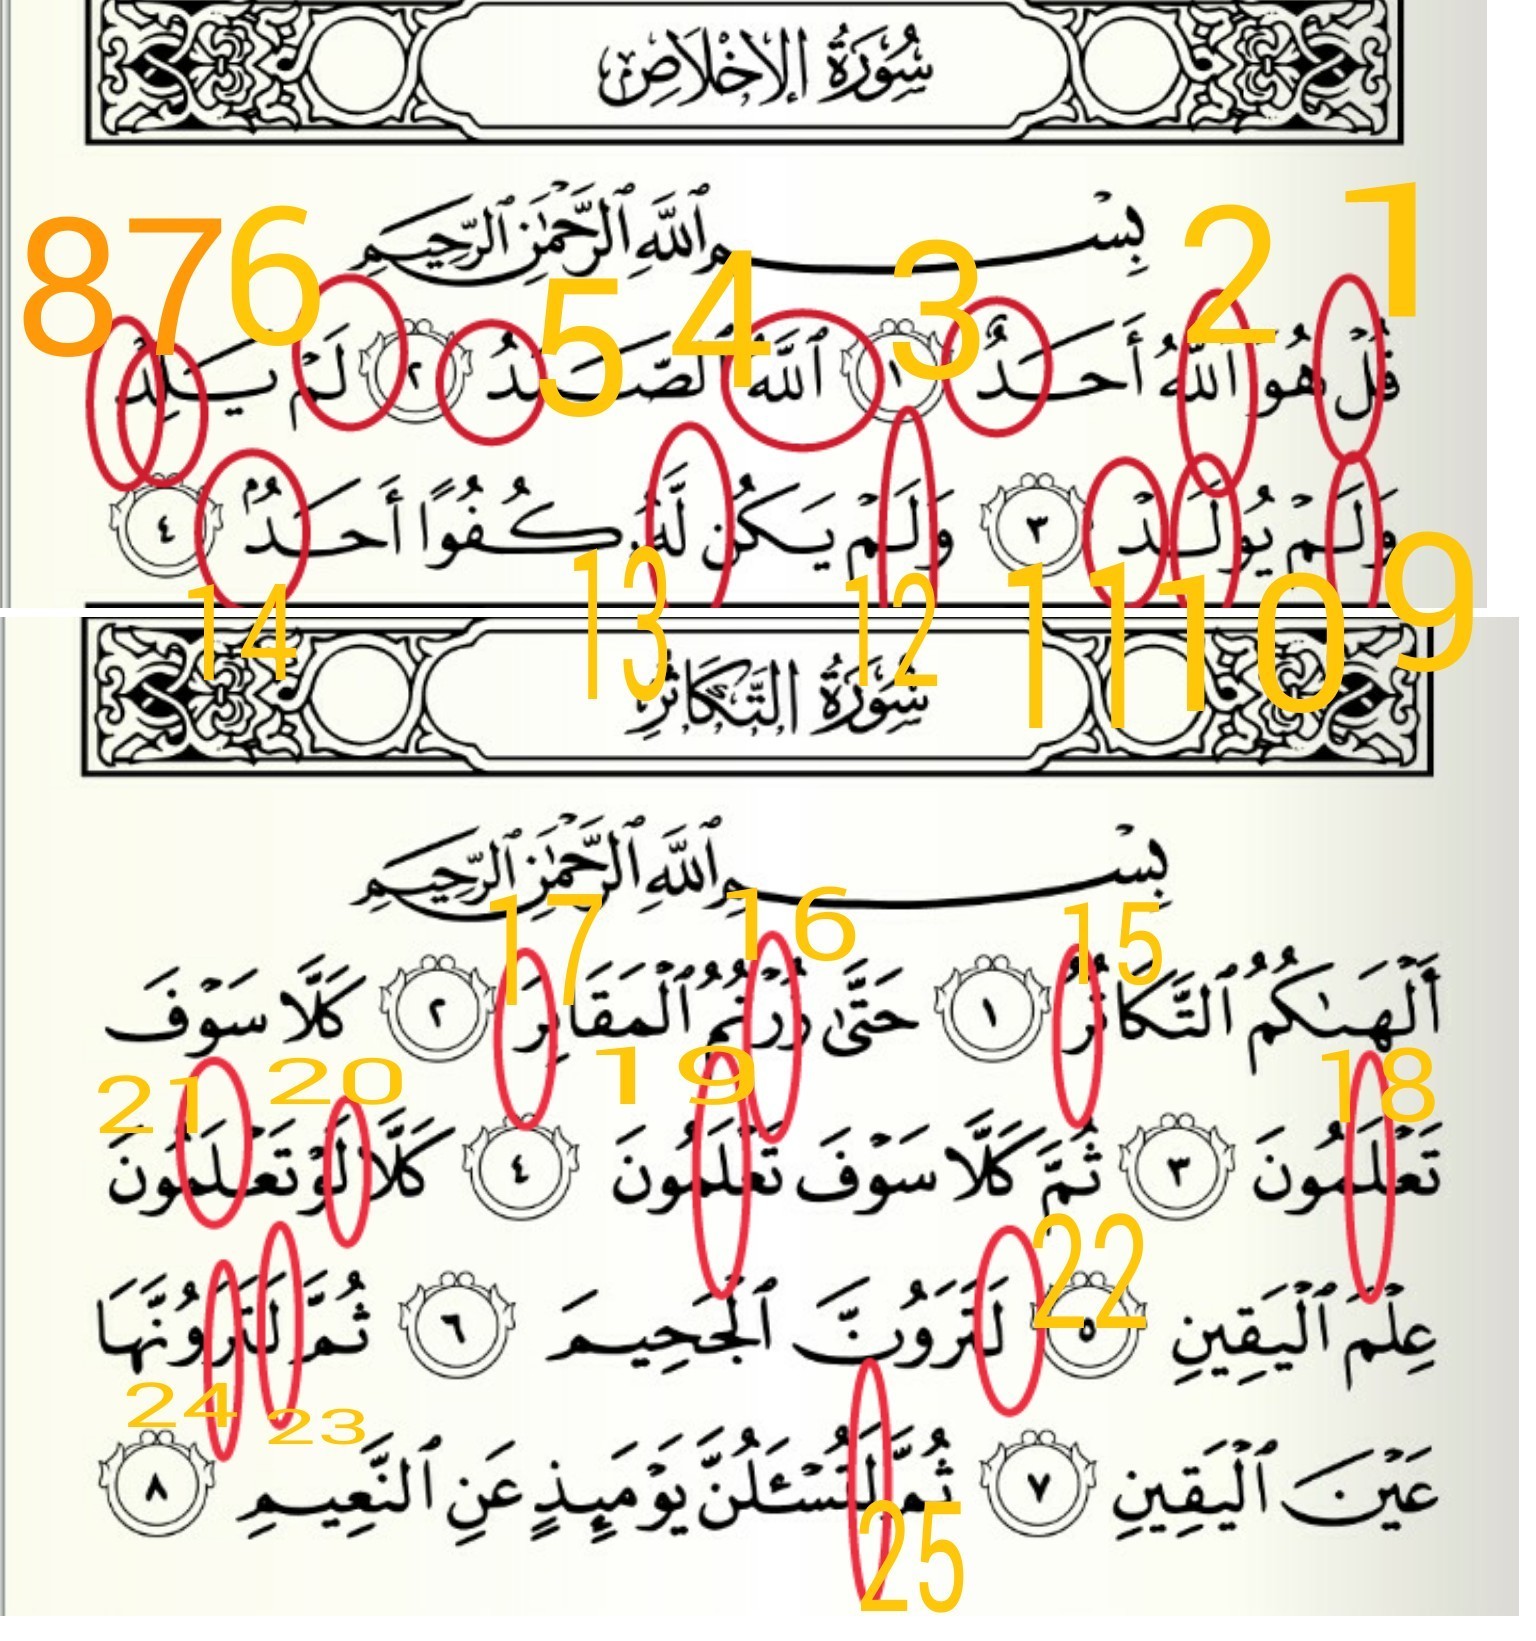 سُورَةُ الإِخْلَاصِ
بِسْمِ ٱللَّهِ ٱلرَّحْمَٰنِ ٱلرَّحِيمِ
8 7 6 5 4 3 2 1
قُلْ هُوَ ٱللَّهُ أَحَدٌ ١ ٱللَّهُ ٱلصَّمَدُ ٢ لَمْ يَلِدْ
وَلَمْ يُولَدْ ٣ وَلَمْ يَكُن لَّهُۥ كُفُوًا أَحَدٌۢ ٤
14 13 12 11 10 9
سُورَةُ التَّكَاثُرِ
بِسْمِ ٱللَّهِ ٱلرَّحْمَٰنِ ٱلرَّحِيمِ
17 16 15
أَلْهَىٰكُمُ ٱلتَّكَاثُرُ ١ حَتَّىٰ زُرْتُمُ ٱلْمَقَابِرَ ٢ كَلَّا سَوْفَ
21 20 19 18
تَعْلَمُونَ ٣ ثُمَّ كَلَّا سَوْفَ تَعْلَمُونَ ٤ كَلَّا لَوْ تَعْلَمُونَ
22
عِلْمَ ٱلْيَقِينِ ٥ لَتَرَوُنَّ ٱلْجَحِيمَ ٦ ثُمَّ لَتَرَوُنَّهَا
24 23
عَيْنَ ٱلْيَقِينِ ٧ ثُمَّ لَتُسْـَٔلُنَّ يَوْمَئِذٍ عَنِ ٱلنَّعِيمِ ٨
25